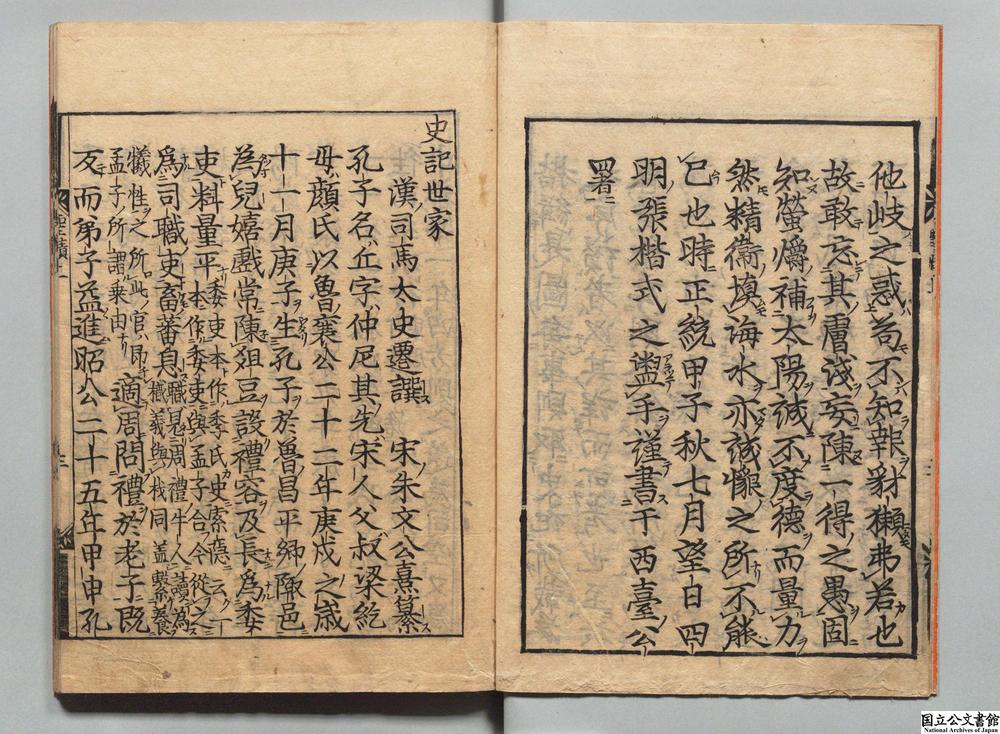 他岐之惑苟不知報豺獺弗若也
故敢忘其膚淺妄陳一得之愚固
知螢爝補太陽誠不度德而量力
然精衞塡海水亦誠懷之所不能
已也時正統甲子秋七月望日四
明張楷式之盥手謹書于西臺公
署
史記世家
漢司馬太史遷譔 宋朱文公熹纂
孔子名丘字仲尼其先宋人父叔梁紇
母顔氏以魯襄公二十二年庚戌之歲
十一月庚子生孔子於魯昌平鄉陬邑
爲兒嬉戲常陳俎豆設禮容及長爲委
吏料量平委吏本作季氏史索隱云一本作委吏與孟子合今從之
爲司職吏畜蕃息職見周禮牛人讀爲樴義與杙同蓋繫養
犧牲之所此官卽孟子所謂乘田適周問禮於老子旣
反而弟子益進昭公二十五年甲申孔
国立公文書館
National Archives of Japan